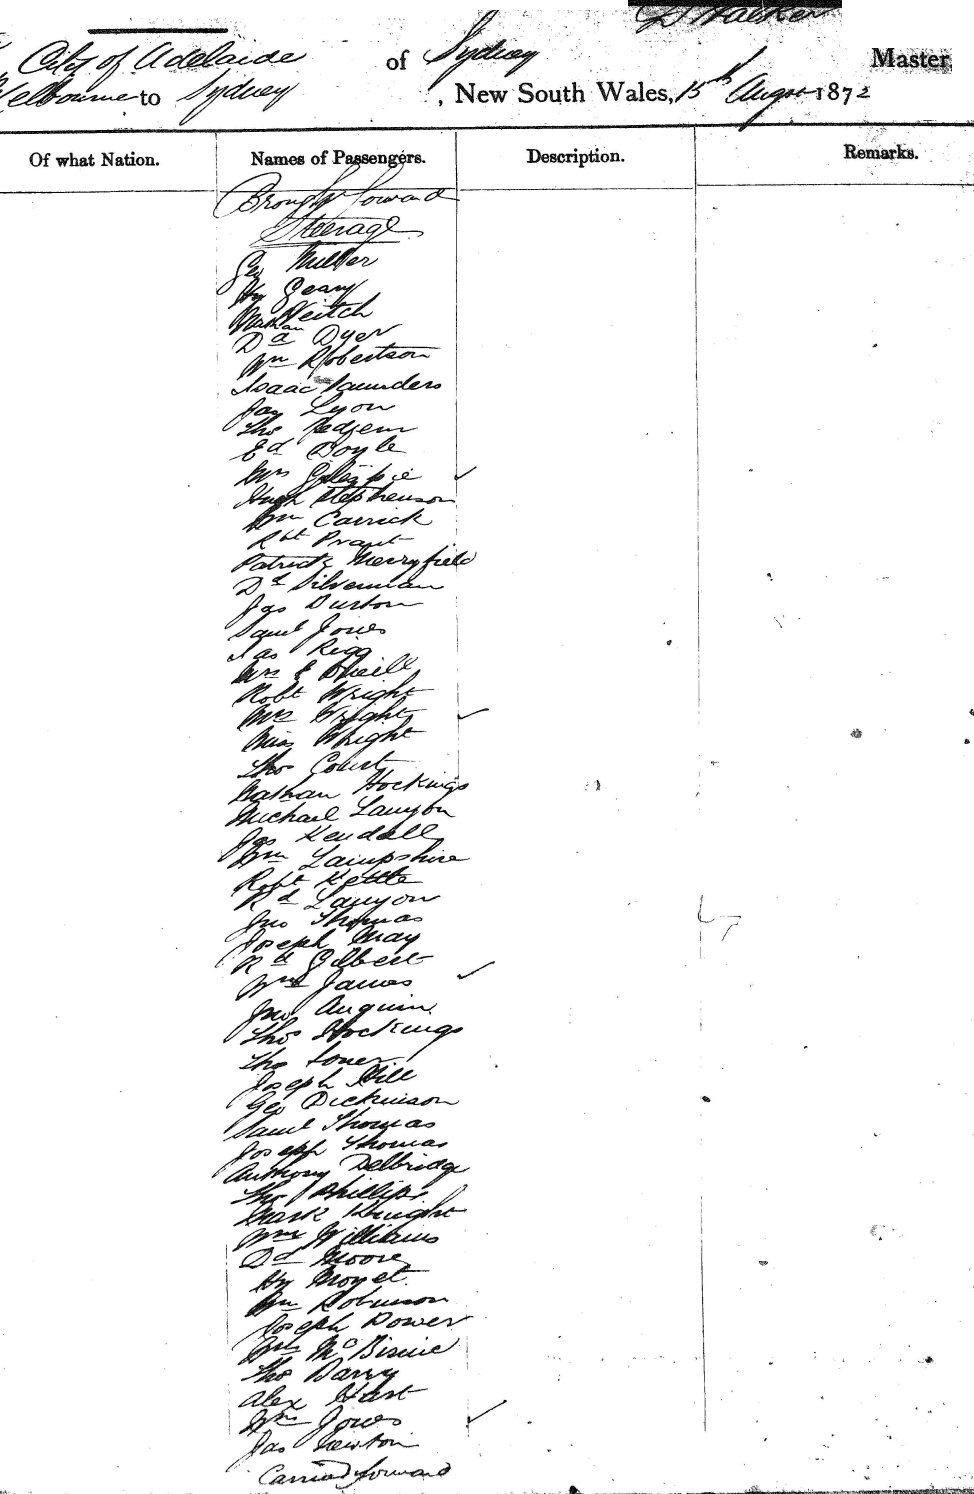 D Walker
City of Adelaide of Sydney Master
Melbourne to Sydney, New South Wales, 15th August 1872
Of what Nation. Names of Passengers. Description. Remarks.
Brought forward
Steerage
Geo Miller
Hy Geary
Veitch
Dd Dyer
Wm Robertson
Isaac Saunders
Jas Lyon
Thos
Ed Doyle
Mrs Gillespie
Hugh Stephenson
Wm Carrick
Rbt
Patrick Merryfield
Dd Silverman
Jas Burton
Saml Jones
Jas Rigg
Mrs E O'Neill
Robt Wright
Mrs Wright
Miss Wright
Thos Court
Nathan Hockings
Michael Lanyon
Jas Kendall
Wm Lampshire
Robt Kettle
Rd Lanyon
Jno Thomas
Joseph May
Rd Gilbert
Wm James
Jno Anguin
Thos Hockings
Thos
Joseph Hill
Geo Dickinson
Saml Thomas
Joseph Thomas
Anthony Delbridge
Thos Phillips
Mark Knight
Wm Williams
Dd Moore
Hy Moyet
Wm Robinson
Joseph Power
Mc
Thos Barry
Alex Hart
Wm Jones
Jas Newton
Carried forward